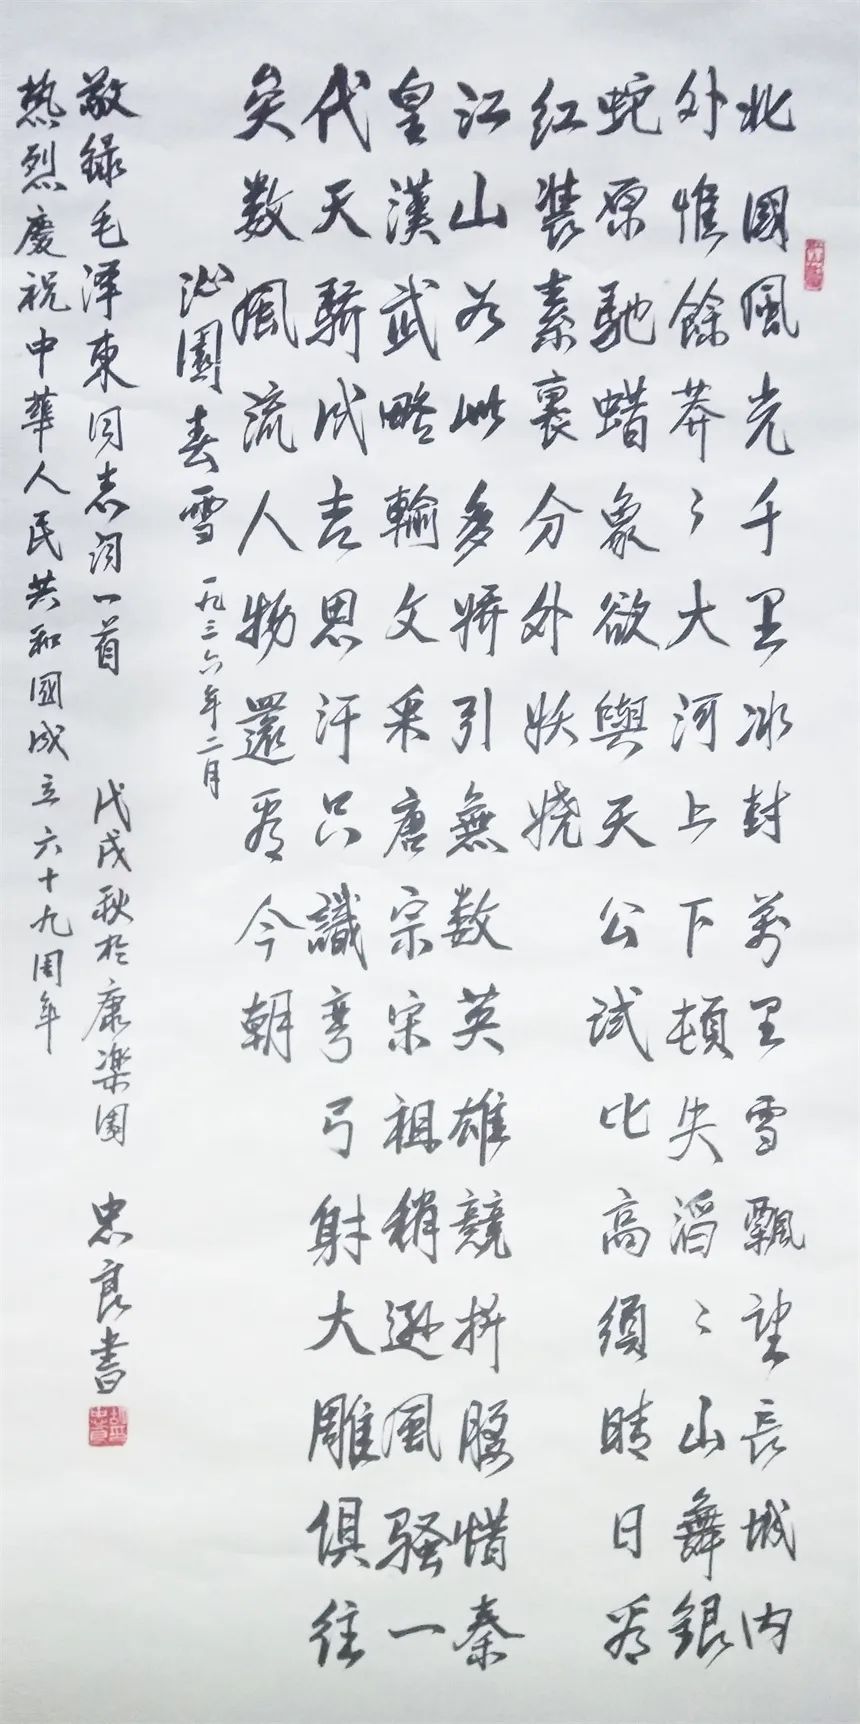 北國風光千里冰封萬里雪飄望長城内
外惟餘莽〻大河上下頓失滔〻山舞銀
蛇原馳蜡象欲與天公試比高須晴日看
红裝素裹分外妖娆
江山如此多嬌引無数英雄競折腰惜秦
皇漢武略輸文采唐宗宋祖稍遜風騷一
代天驕成吉思汗只識彎弓射大雕俱往
矣数風流人物還看今朝
沁園春雪 一九三六年二月
敬録毛澤東同志词一首 戊戌秋於康樂園 忠良書
热烈慶祝中華人民共和國成立六十九周年